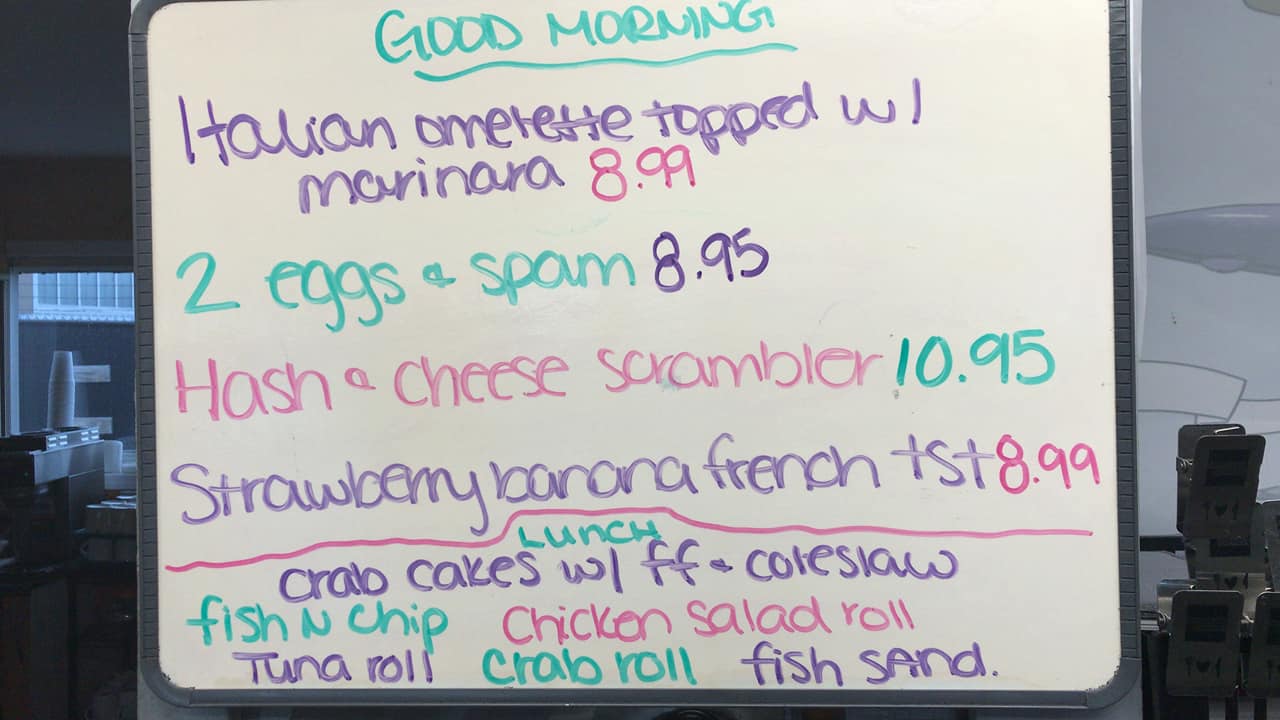 GOOD MORNING
Italian omelette topped w/
marinara 8.99
2 eggs & spam 8.95
Hash & cheese scrambler 10.95
Strawberry banana french tst 8.99
LUNCH
crab cakes w/ ff & coleslaw
fish N chip chicken salad roll
Tuna roll crab roll fish sand.